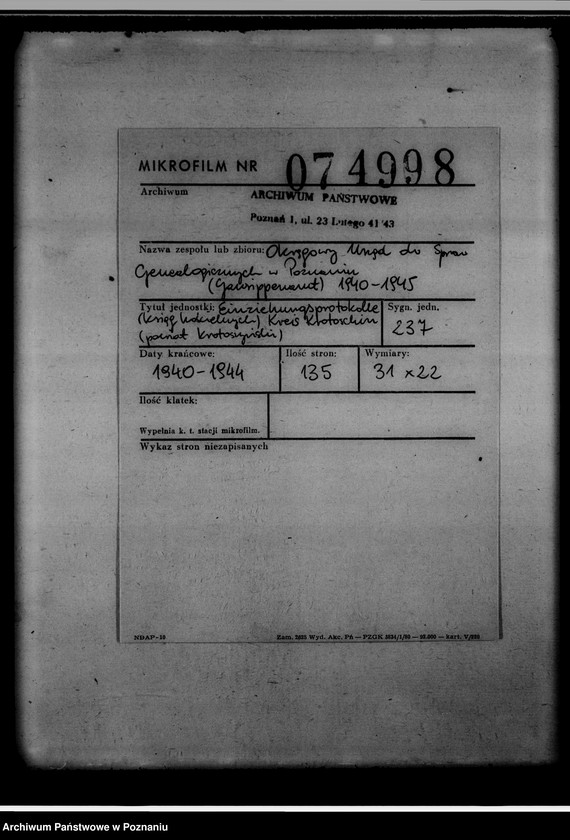 MIKROFILM NR 074998
Archiwum ARCHIWUM PAŃSTWOWE
Poznań 1, ul. 23 Lutego 41/43
Nazwa zespołu lub zbioru: Okręgowy Urząd do Spraw
Genealogicznych w Poznaniu
(Gausippenamt) 1940-1945
Tytuł jednostki: Einziehungsprotokolle
(Ksiąg kościelnych) Kreis Krotoschin
(powiat Krotoszyński)
Sygn. jedn.
237
Daty krańcowe:
1940-1944
Ilość stron:
135
Wymiary:
31 x 22
Ilość klatek:
Wypełnia k. t. stacji mikrofilm.
Wykaz stron niezapisanych
NDAP-18
Archiwum Państwowe w Poznaniu